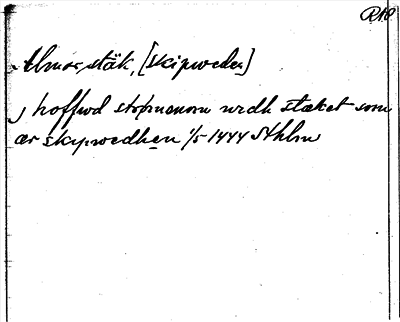 RAP
Almarstäk, [skipweden]
J hoffwd strömenom widh stæket som
ær skipwedhen 1/5-1444 Sthlm